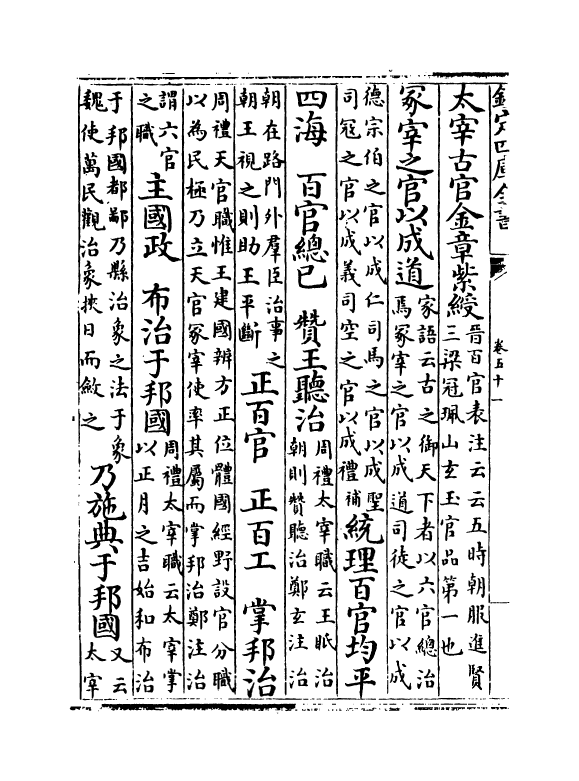 欽定四庫全書 卷五十一
太宰古官金章紫綬 晉百官表注云云五時朝服進賢
三梁冠珮山玄玉官品第一也
冢宰之官以成道 家語云古之御天下者以六官總治
焉冢宰之官以成道司徒之官以成
德宗伯之官以成仁司馬之官以成聖
司冦之官以成義司空之官以成禮補 統理百官均平
四海 百官總已 贊王聽治 周禮太宰職云王眡治
朝則贊聽治鄭玄注治
朝在路門外羣臣治事之
朝王視之則助王平斷 正百官 正百工 掌邦治
周禮天官職惟王建國辨方正位體國經野設官分職
以為民極乃立天官冢宰使率其屬而掌邦治鄭注治
謂六官
之職 主國政 布治于邦國 周禮太宰職云太宰掌
以正月之吉始和布治
于邦國都鄙乃縣治象之法于象
魏使萬民觀治象挾日而斂之 乃施典于邦國 又云
太宰